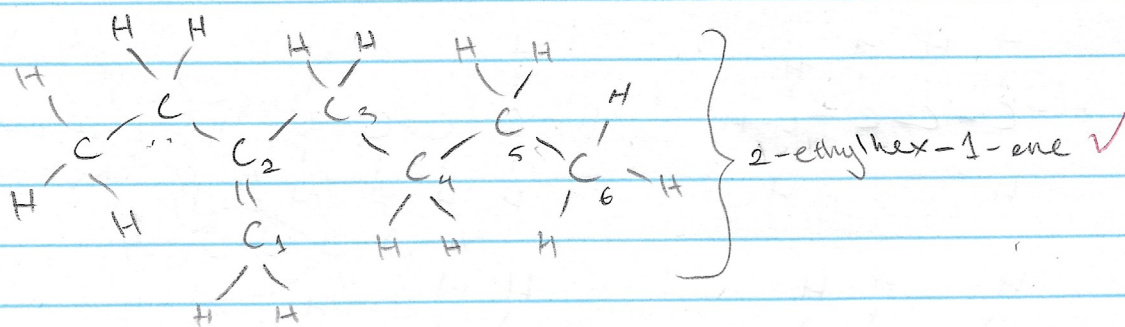 H H H H H H
H C C 3 C H
C C 2 C 4 5 C H
H H C 1 H H H 6
H H
2-ethylhex-1-ene